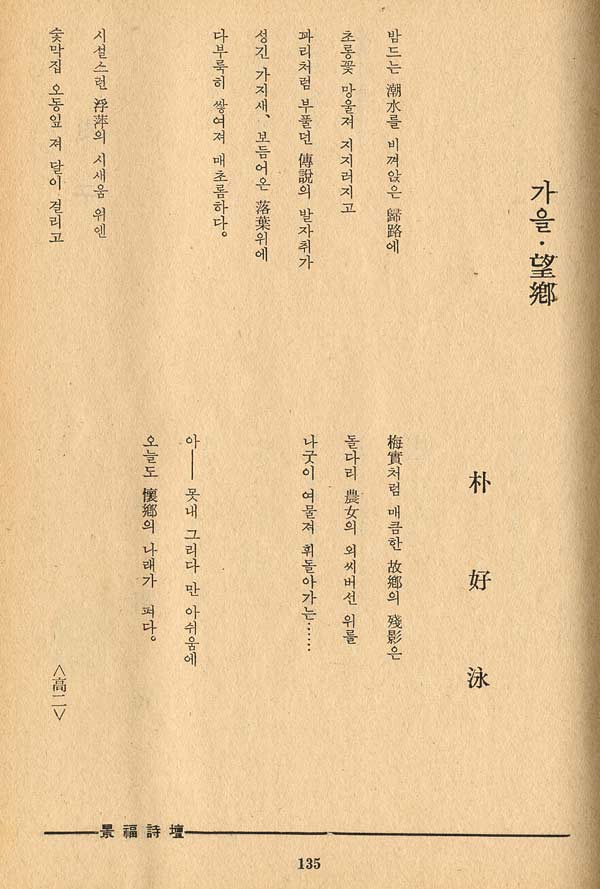 가을·望鄕
朴好泳
밤드는 潮水를 비껴앉은 歸路에
초롱꽃 망울져 지지러지고
파리처럼 부풀던 傳說의 발자취가
성긴 가지새、보듬어온 落葉위에
다부룩히 쌓여져 매초롬하다。
시설스런 浮萍의 시새움 위엔
숯막집 오동잎 져 달이 걸리고
梅實처럼 매큼한 故鄕의 殘影은
돌다리 農女의 외씨버선 위를
나긋이 여물져 휘돌아가는……
아── 못내 그리다 만 아쉬움에
오늘도 懷鄕의 나래가 펴다。
<高二>
景福詩壇
135